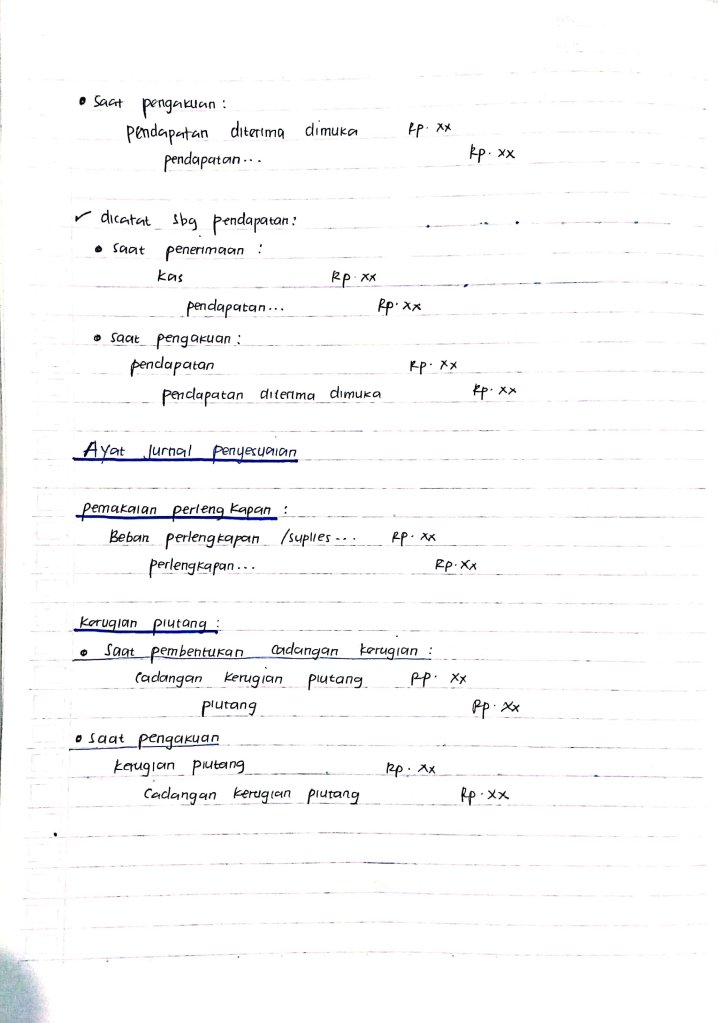 • Saat pengakuan :
pendapatan diterima dimuka Rp. xx
pendapatan... Rp. xx
✓ dicatat sbg pendapatan :
• Saat penerimaan :
kas Rp. xx
pendapatan... Rp. xx
• Saat pengakuan :
pendapatan Rp. xx
pendapatan diterima dimuka Rp. xx
Ayat Jurnal Penyesuaian
pemakaian perlengkapan :
Beban perlengkapan /suplies... Rp. xx
perlengkapan... Rp. xx
kerugian piutang :
• Saat pembentukan cadangan kerugian :
Cadangan kerugian piutang Rp. xx
piutang Rp. xx
• Saat pengakuan
kerugian piutang Rp. xx
Cadangan kerugian piutang Rp. xx